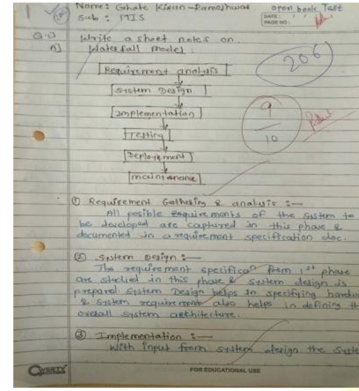 Name: Ghate Kiran Rameshwar
open book Test
Sub: MIS
DATE: / /
PAGE NO.:
Q.1) Write a short notes on
A] Waterfall model:
Requirement analysis
System Design
Implementation
Testing
Deployment
maintenance
206
9
10
① Requirement Gathering & analysis :-
All posible requirements of the system to
be developed are captured in this phase &
documented in a requirement specification doc.
② System Design :-
The requirement specificaⁿ from 1st phase
are studied in this phase & system design is
prepared system Design helps in specifying hardware
& system requirement also helps in defining the
overall system architecture.
③ Implementation :-
With input from system design the system
FOR EDUCATIONAL USE